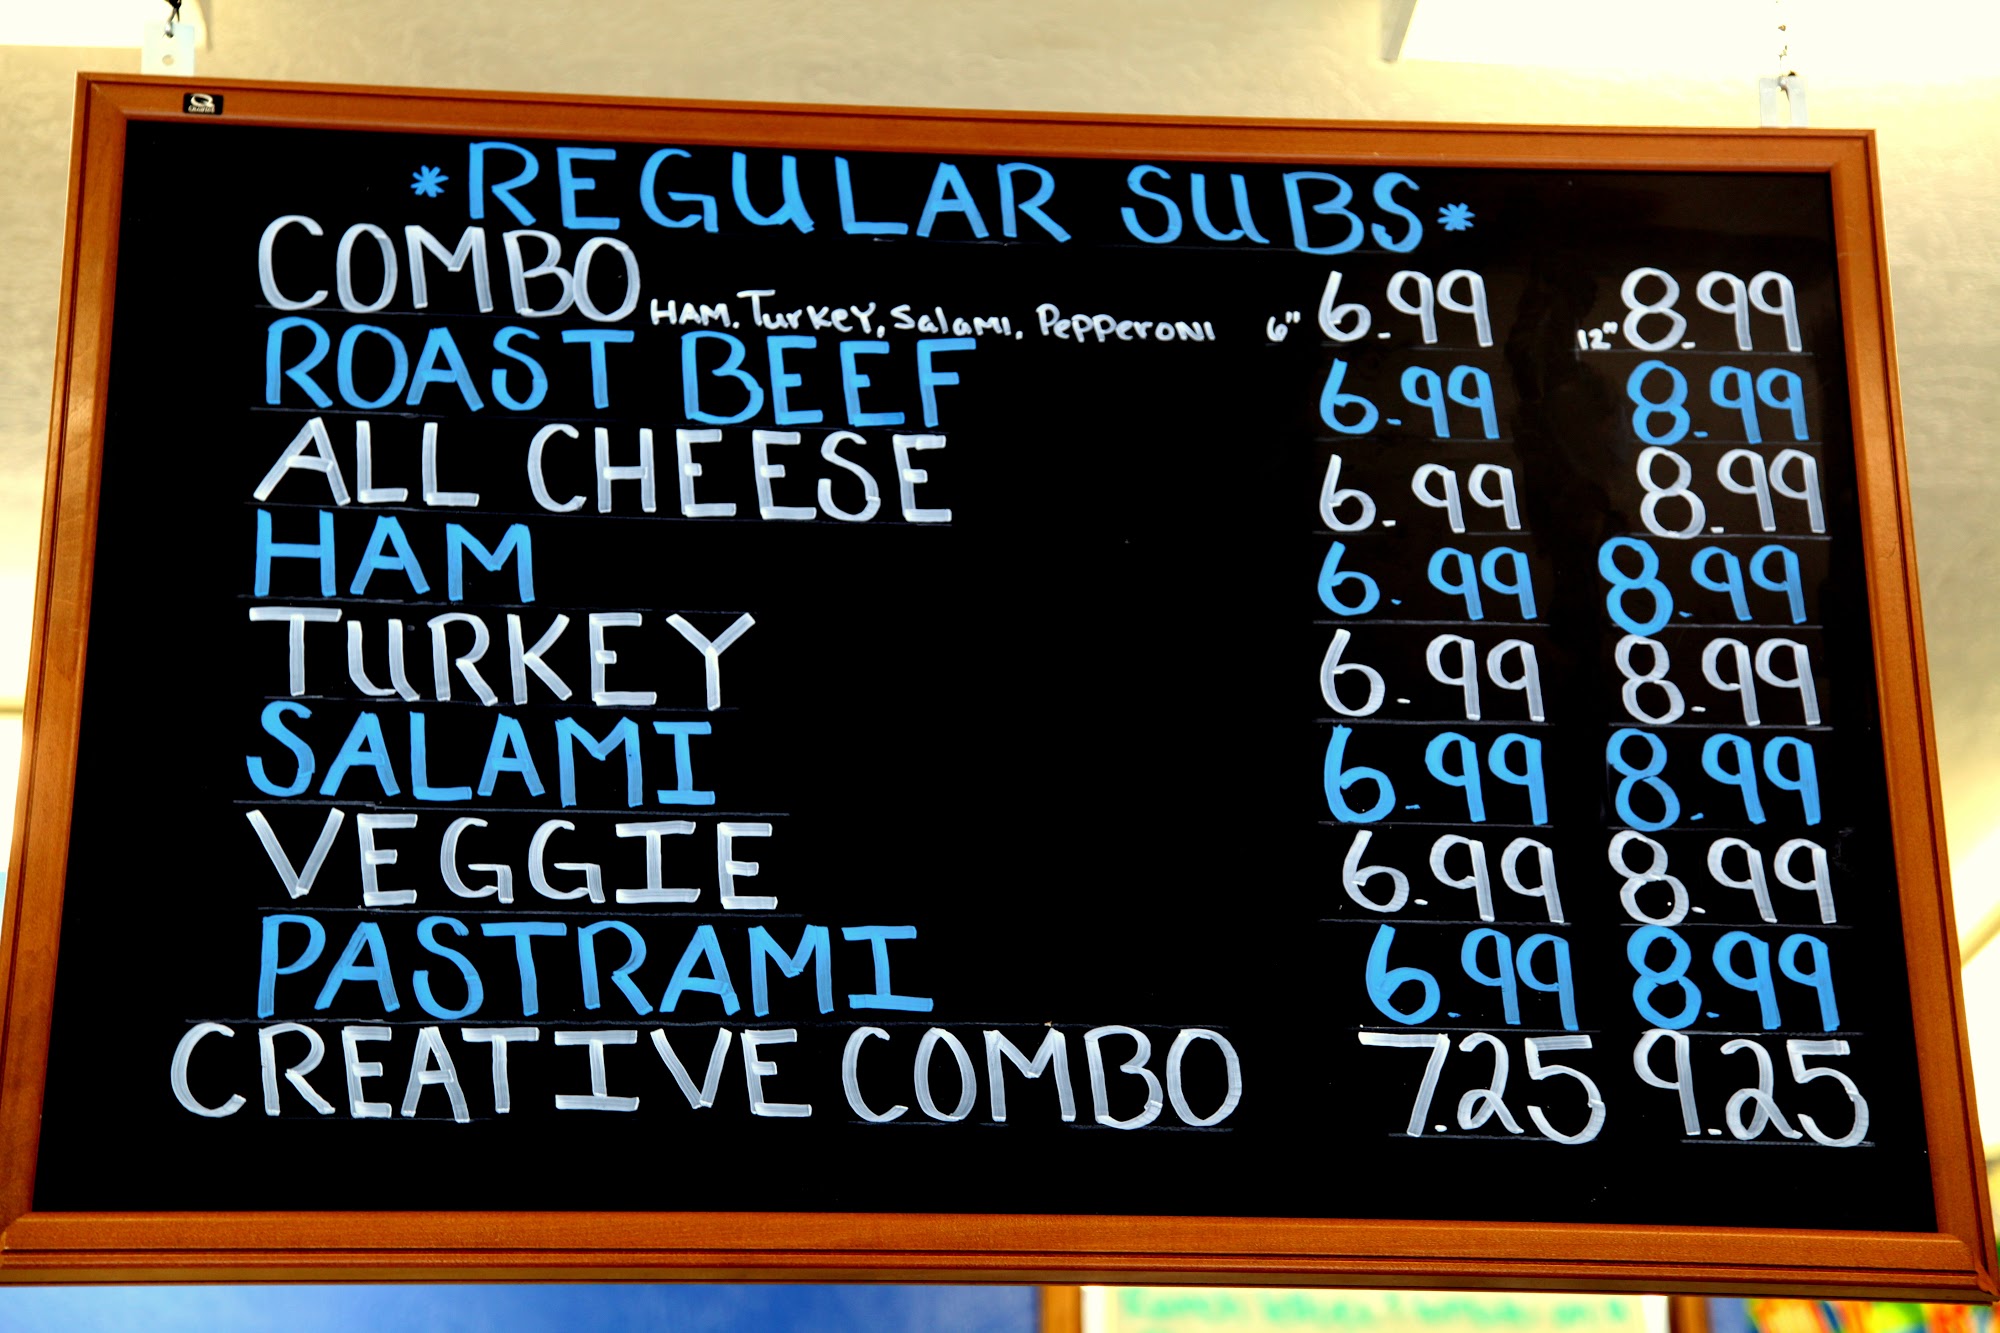 *REGULAR SUBS*
COMBO HAM. TurkeY, SalaMI. PePPeroNI 6" 6.99 12" 8.99
ROAST BEEF 6.99 8.99
ALL CHEESE 6.99 8.99
HAM 6.99 8.99
TURKEY 6.99 8.99
SALAMI 6.99 8.99
VEGGIE 6.99 8.99
PASTRAMI 6.99 8.99
CREATIVE COMBO 7.25 9.25